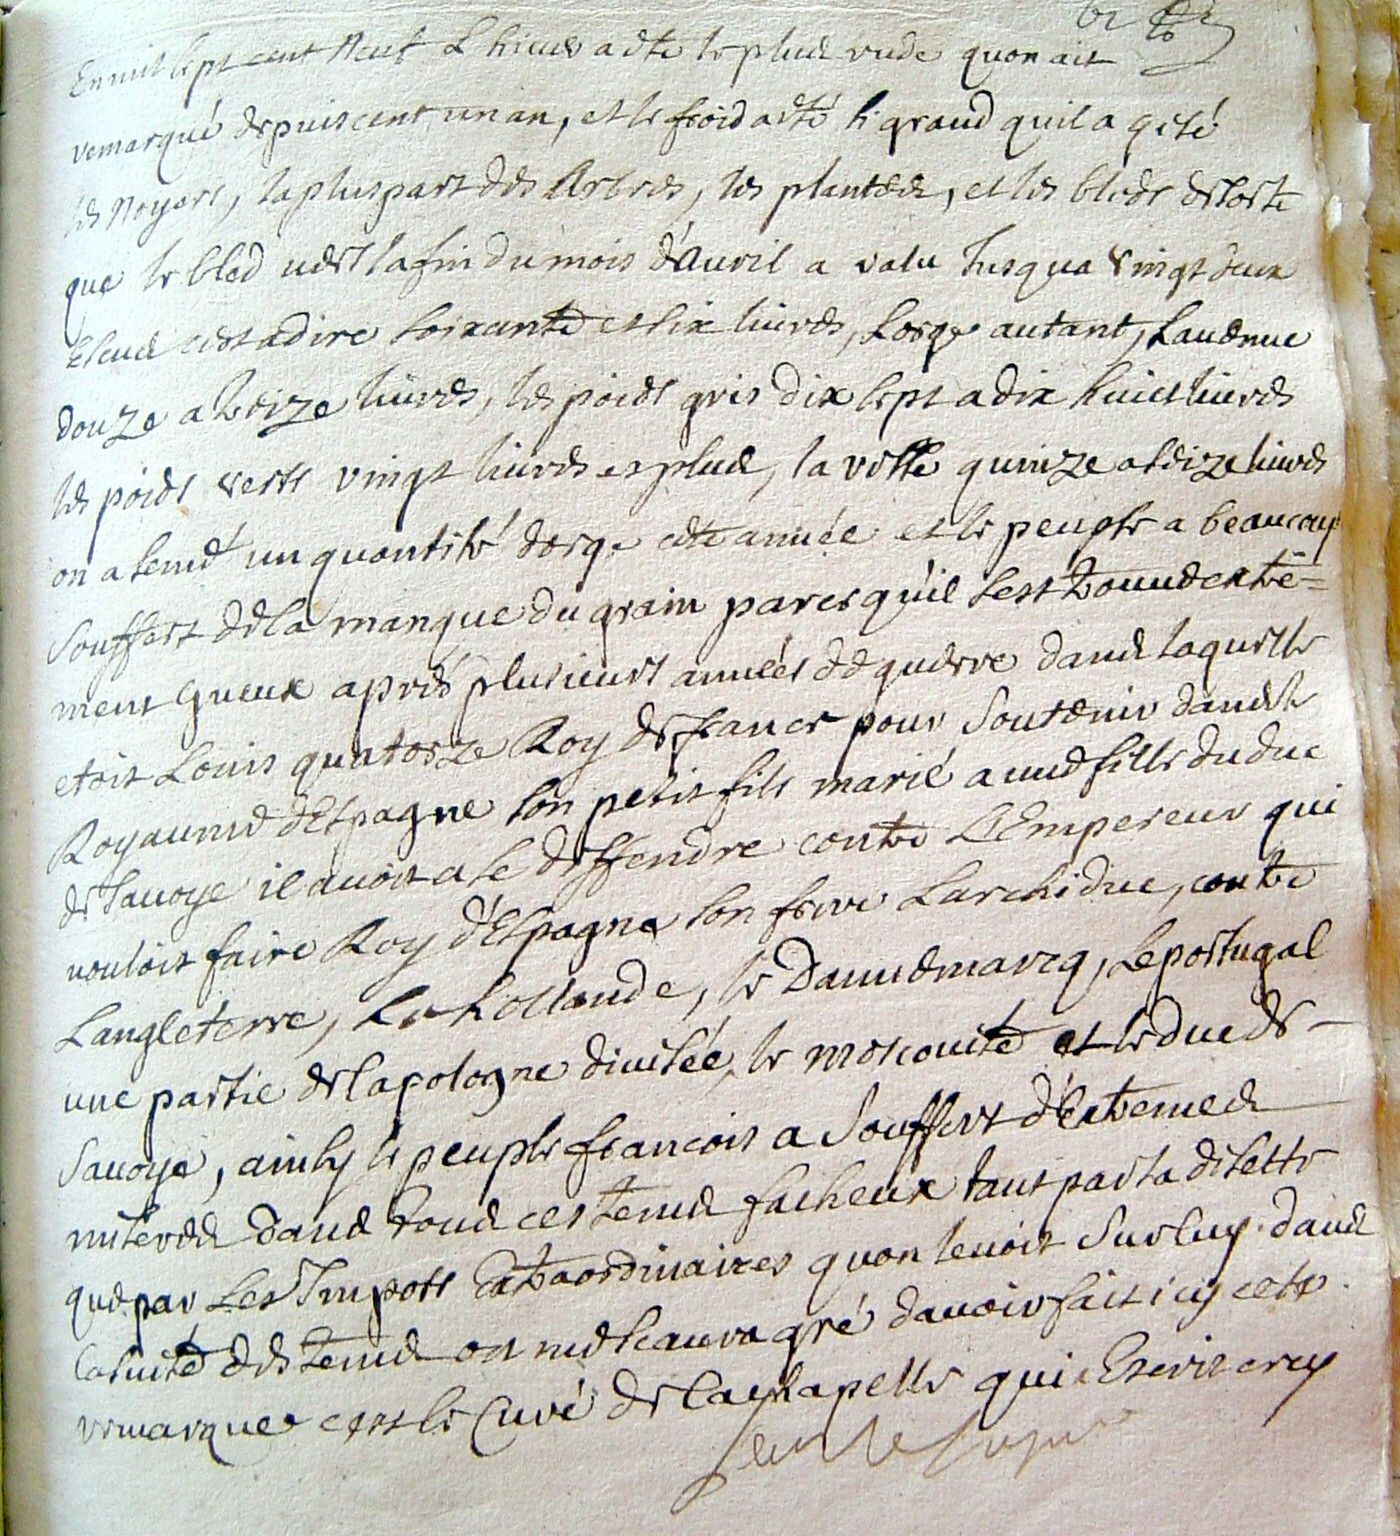 En mil sept cent neuf L'hiver a eté le plus rude quon ait
remarqué depuis cent un an, et le froid a été si grand quil a gelé
les Noyers, la pluspart des Arbres, les plantes, et les bleds de sorte
que le bled vers la fin du mois d'Auril a valu Jusqua vingt deux
Escus cest adire soixante et six liures, Lorge autant, Lauenne
douze a treize liures, les poids gris dix sept a dix huict liures
les poids verts vingt liures et plus, la vesse quinze a seize liures
on a semé un quantité dorge cette année et le peuple a beaucoup
Souffert de la manque du grain parce qu'il sest trouué extre=
ment gueux aprés plusieurs années de guerre dans laquelle
etoit Louis quatorze Roy de france pour Soutenir dans le
Royaume d'Espagne son petit fils marié a une fille du duc
de Sauoye il auoit a se deffendre contre L'Empereur qui
vouloit faire Roy d'Espagne son frere Larchiduc, contre
Langleterre, La hollande, le Dannemarcq, Le portugal
une partie de la pologne diuisée, le moscouite et le duc de
Sauoye, ainsy le peuple francois a Souffert d'Extremes
miseres dans tous ces tems facheux tant par la disette
que par Les Impots Extraordinaires quon leuoit Sur luy. dans
la suite des tems on me scaura gré dauoir fait icy cette
remarque cest le Curé de la chapelle qui Escrit cecy